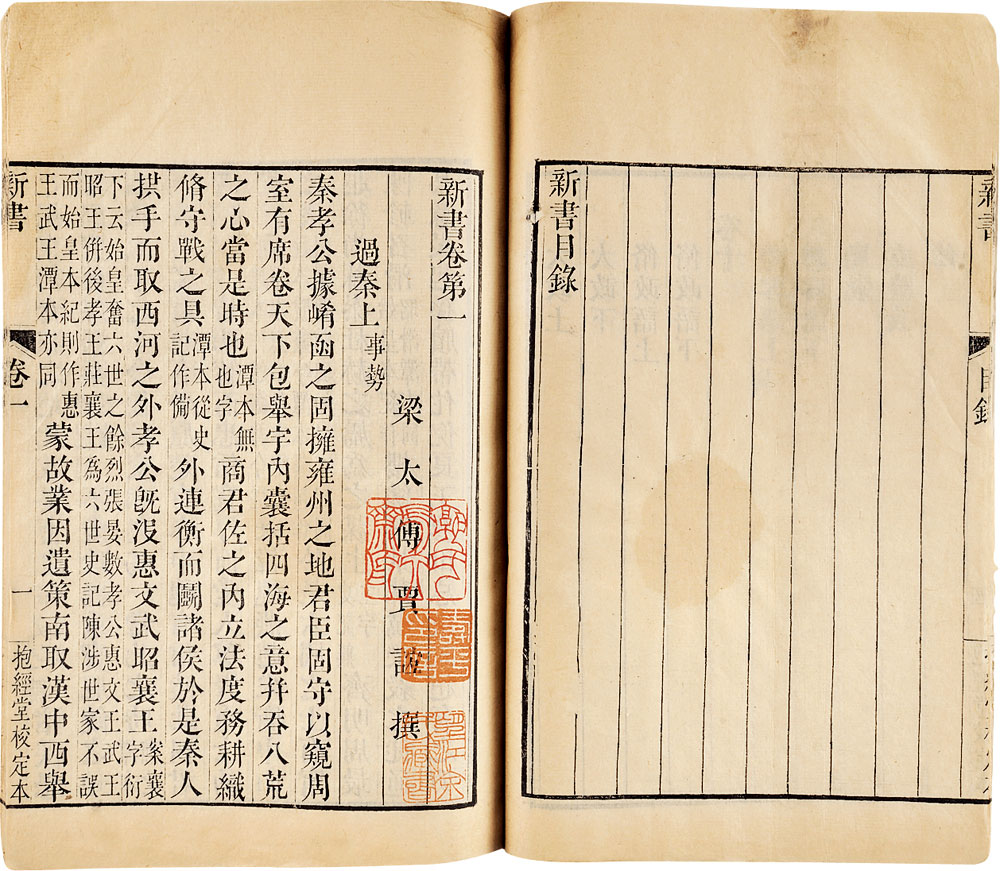 新書
目錄
新書目錄
新書卷第一
梁太傅賈誼撰
過秦上事勢
秦孝公據崤函之固擁雍州之地君臣固守以窺周
室有席卷天下包舉宇內囊括四海之意幷吞八荒
之心當是時也潭本無也字商君佐之內立法度務耕織
脩守戰之具潭本從史記作備外連衡而鬭諸侯於是秦人
拱手而取西河之外孝公旣沒惠文武昭襄王案襄字衍
下云始皇奮六世之餘烈張晏數孝公惠文王武王
昭王併後孝王莊襄王爲六世史記陳涉世家不誤
而始皇本紀則作惠王武王潭本亦同蒙故業因遺策南取漢中西舉
新書
卷一
一
抱經堂校定本